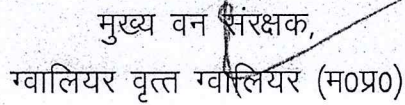 मुख्य वन संरक्षक,
ग्वालियर वृत्त ग्वालियर (म0प्र0)